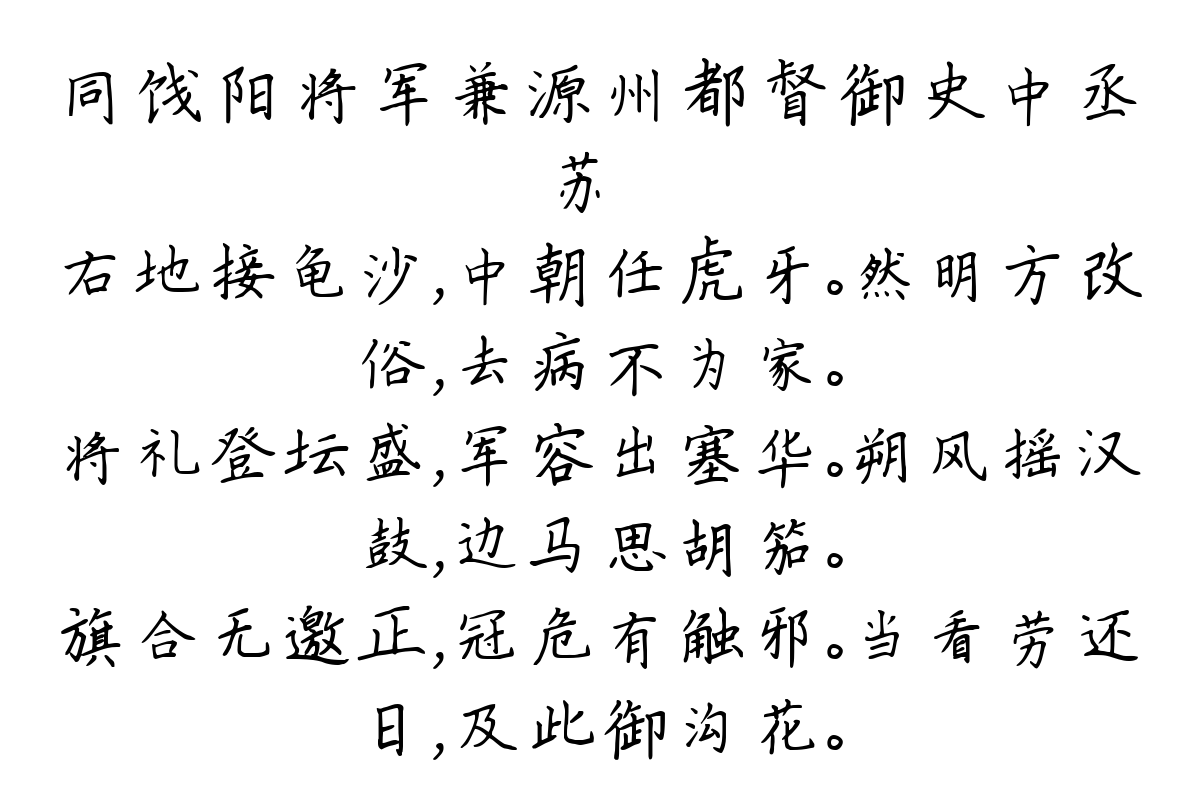 同饯阳将军兼源州都督御史中丞
苏
右地接龟沙,中朝任虎牙。然明方改
俗,去病不为家。
将礼登坛盛,军容出塞华。朔风摇汉
鼓,边马思胡笳。
旗合无邀正,冠危有触邪。当看劳还
日,及此御沟花。